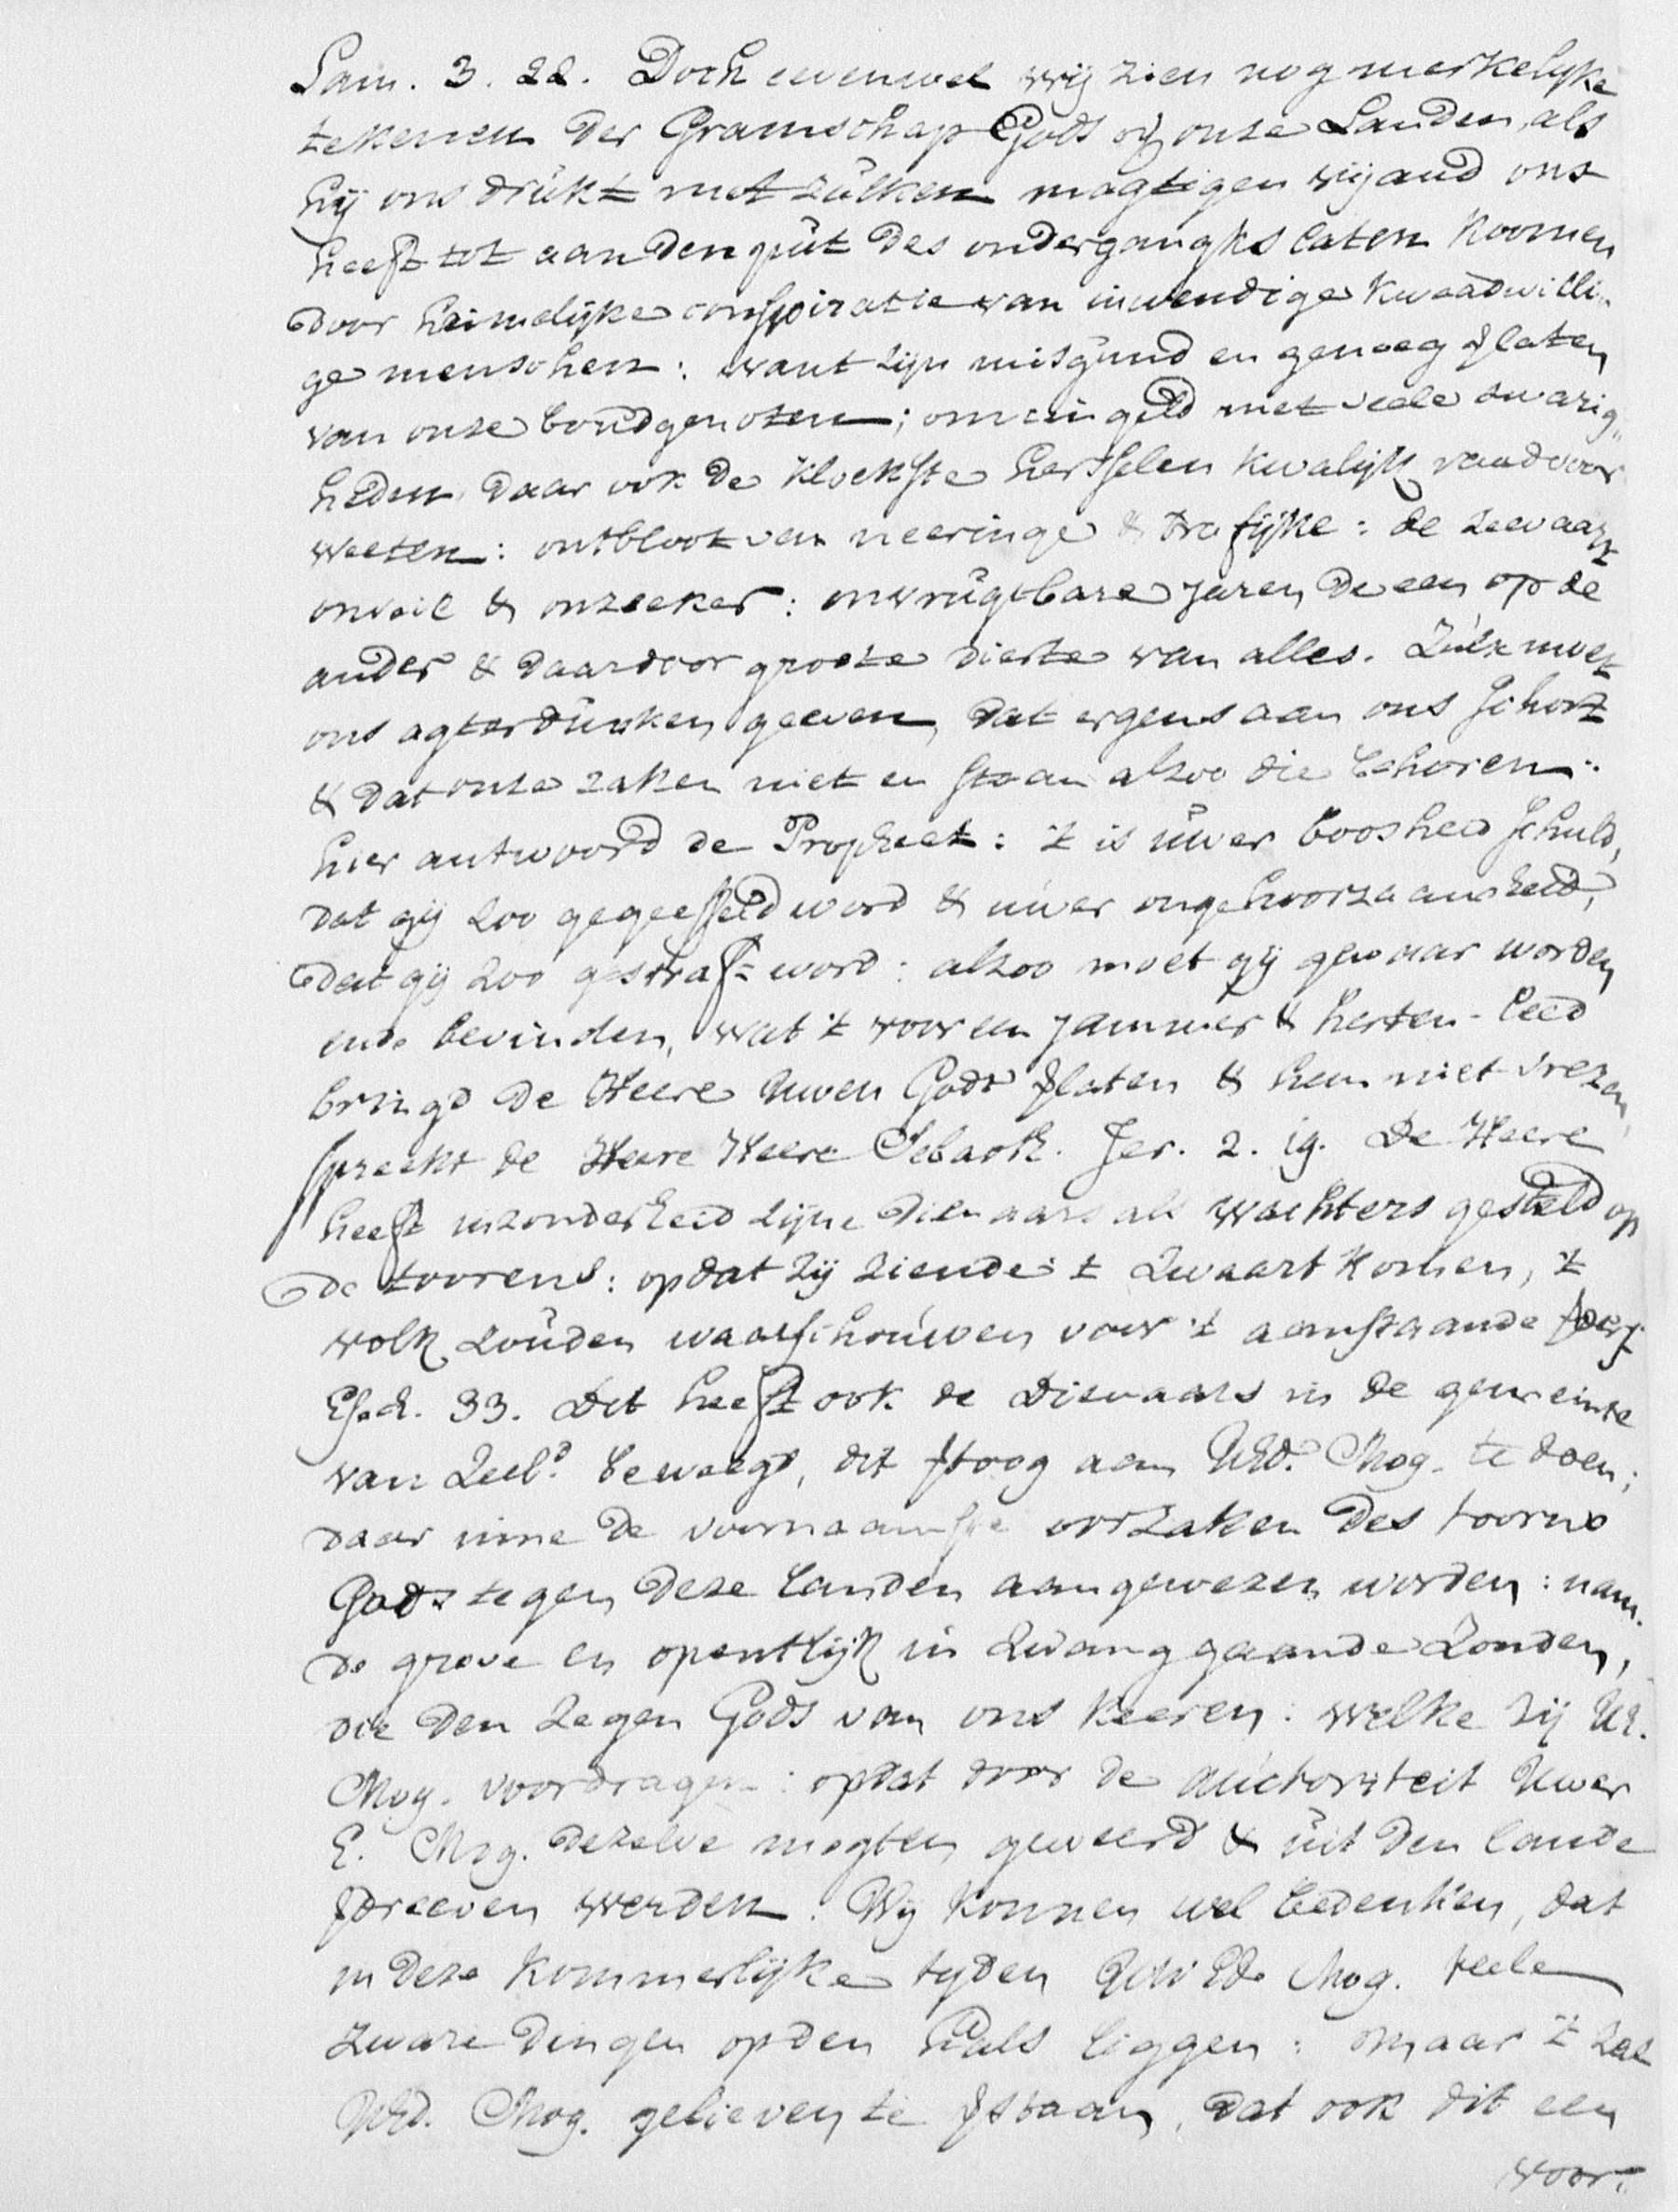 Lam. 3. 22. Doch evenwel wij zien nog merkelyke
tekenen der Gramschap Gods op onze Landen, als
hij ons drukt met zulken magtigen vijand ons
heeft tot aan den put des ondergangks laten koomen
door heimelijke conspiratie van inwendige kwaadwilli„
ge menschen: want zijn misgund en genoeg ƒlaten
van onze bondgenoten; omringeld met veele swarig„
heden, daar ook de kloekste hersselen kwalijk raad voor
weeten: ontbloot van neeringe & trafijke: de zeevaart
onveil & onzeeker: onvrugtbare jaren de een op de
ander & daardoor groote dierte van alles. Zulx moet
ons agterdunken geeven, dat ergens aan ons schort
& dat onze zaken niet en staan alzoo die behoren:
hier antwoord de Propheet: 't is uwer boosheid schuld,
dat gij zoo gegeesseld word & uwer ongehoorzaamheid,
dat gij zoo gestraft word: alzoo moet gij gewaar worden
ende bevinden, wat 't voor een jammer & herten-leed
bringd de Heere uwen Godt ƒlaten & hem niet vrezen,
spreekt de Heere Heere Sebaoth. Jer. 2. 19. De Heere
heeft inzonderheid zijne dienaars als wachters gesteld op
de toorens: opdat zij ziende 't zwaart komen, 't
volk zouden waarschouwen voor 't aanstaande
Esech. 33. Dit heeft ook de dienaars in de gemeinte
van Zeel.d beweegd, dit ƒtoog aan UEd. Mog. te doen;
daar inne de voornaamste oorzaken des toorns
Gods tegen deze landen aangewezen worden: nam.
de grove en opentlijk in zwang gaande zonden,
die den zegen Gods van ons keeren: welke zij UE.
Mog. voordragen: opdat door de auctoriteit Uwer
E. Mog. dezelve mogten geweerd & uit den lande
ƒdreeven werden. Wij konnen wel bedenken, dat
in deze kommerlijke tyden UW Ed. Mog. veele
zware dingen op den hals liggen: maar 't zal
UEd. Mog. gelieven te ƒstaan, dat ook dit een
voor: